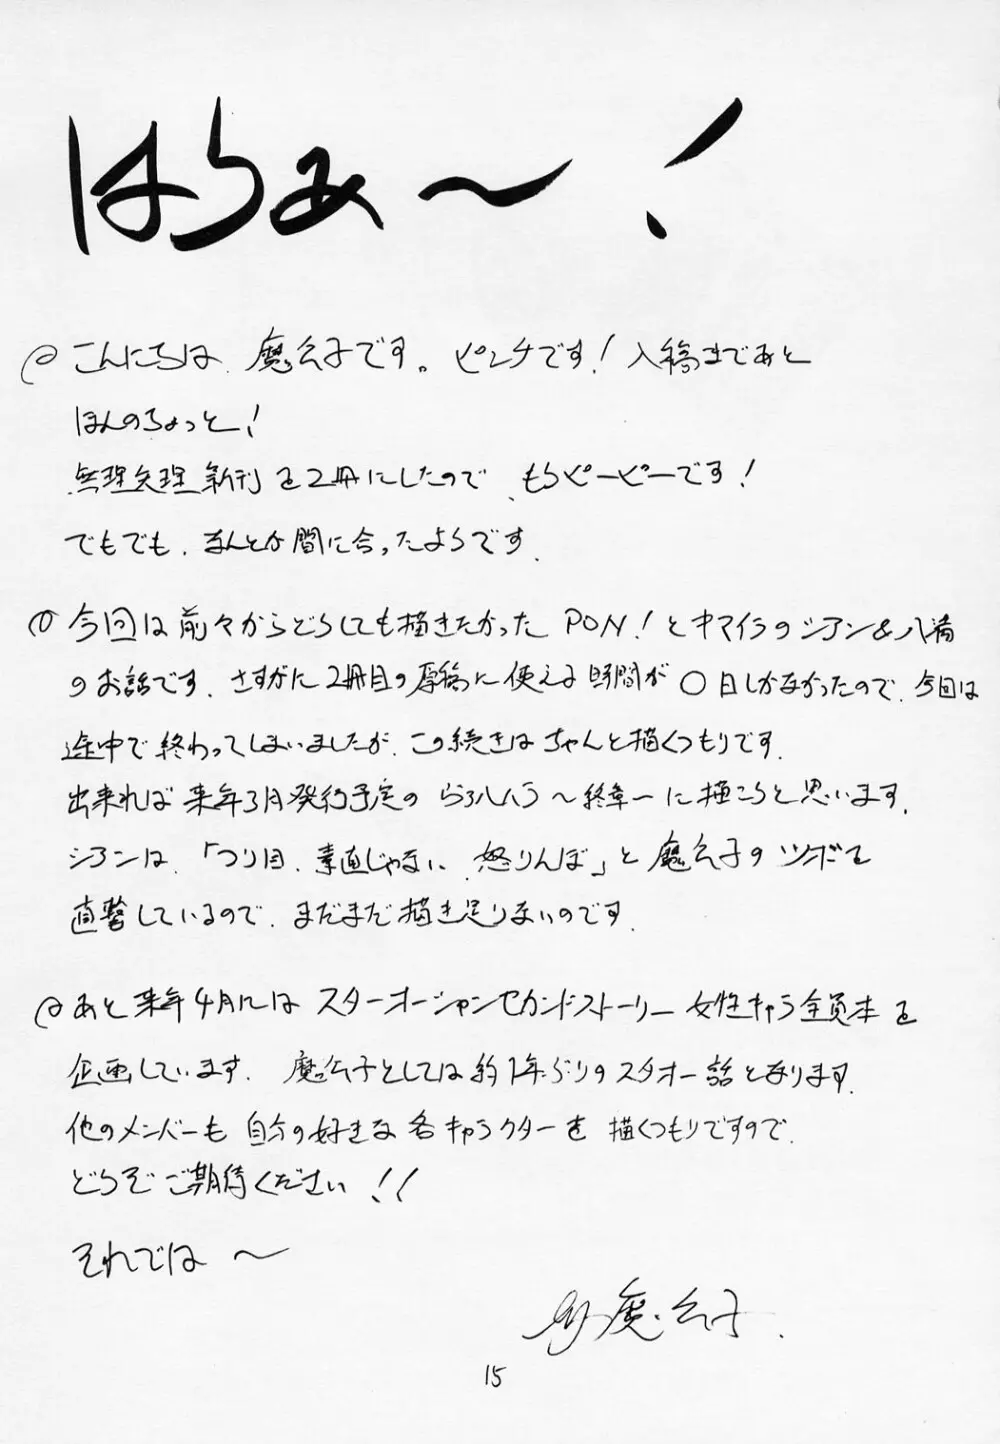 はらあ〜!
こんにちは、魔公子です。ピンチです!入稿まであと
ほんのちょっと!
無理矢理新刊を2冊にしたので、もうピーピーです!
でもでも、なんとか間に合ったようです。
今回は前々からどうしても描きたかったPON!とキマイラのシアン&八満
のお話です。さすがに2冊目の原稿に使える時間が〇日しかなかったので、今回は
途中で終わってしまいましたが、この続きはちゃんと描くつもりです。
出来れば来年3月発行予定の らぶハラ〜終章〜に描こうと思います。
シアンは、「つり目、素直じゃない、怒りんぼ」と魔公子のツボを
直撃しているので、まだまだ描き足りないのです。
あと来年4月にはスターオーシャンセカンドストーリー女性キャラ全員本を
企画しています。魔公子としては約1年ぶりのスタオー話となります。
他のメンバーも自分の好きな各キャラクターを描くつもりですので、
どうぞご期待ください!!
それでは〜
魔公子.
15